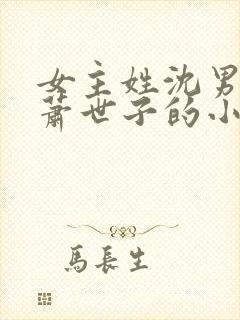 女主姓沈男
萧世子的小
馬長生